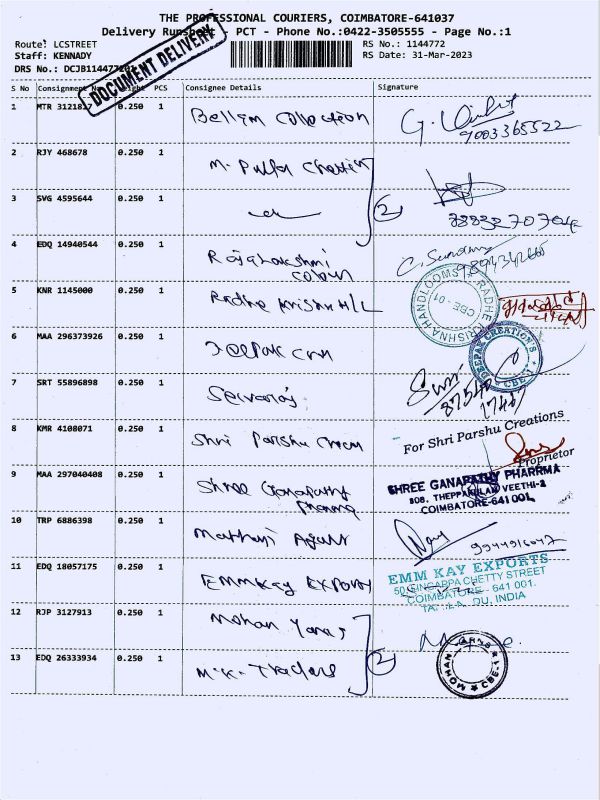 THE PROFESSIONAL COURIERS, COIMBATORE-641037
Delivery Runsheet PCT - Phone No.:0422-3505555 - Page No.:1
Route: LCSTREET RS No.: 1144772
Staff: KENNADY RS Date: 31-Mar-2023
DRS No.: DCJB114477
DOCUMENT DELIVERY
S No Consignment No PCS Consignee Details Signature
1 MTR 3121817 0.250 1 Bellim Collection
9003365522
2 RJY 468678 0.250 1
3 SVG 4595644 0.250 1 2
4 EDQ 14940544 0.250 1 Rajalakshmi
colour
5 KNR 1145000 0.250 1 Radhe Krishna H/L
RADHE KRISHNA HANDLOOMS CBE-01
6 MAA 296373926 0.250 1 Deepak Crn
DEEPAK CREATION'S CBE-1
7 SRT 55896898 0.250 1 Selvaraj
8 KMR 4108071 0.250 1 Shri Parshu Crea
For Shri Parshu Creations
Proprietor
9 MAA 297040408 0.250 1 Shree Ganapathy
Pharma
SHREE GANAPATHY PHARRMA
808, THEPPAKULAM VEETHI-2
COIMBATORE-641 001.
10 TRP 6886398 0.250 1
9944916047
11 EDQ 18057175 0.250 1 Emmkay Exports
EMM KAY EXPORTS
50, SINGARPA CHETTY STREET
COIMBATORE - 641 001.
INDIA
12 RJP 3127913 0.250 1 Mohan Yarns
13 EDQ 26333934 0.250 1 M.K. Traders 2
MOHAN YARNS CBE-1